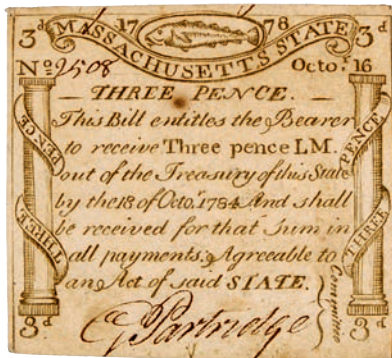 3d 17 78 3d
MASSACHUSETTS STATE
No 2508 Octor. 16
THREE PENCE.
This Bill entitles the Bearer
to receive Three pence LM.
out of the Treasury of this State
by the 18 of Octor. 1784 And shall
be received for that Sum in
all payments. Agreeable to
an Act of said STATE.
PENCE
THREE
PENCE
THREE
Committee
3d 3d
G Partridge